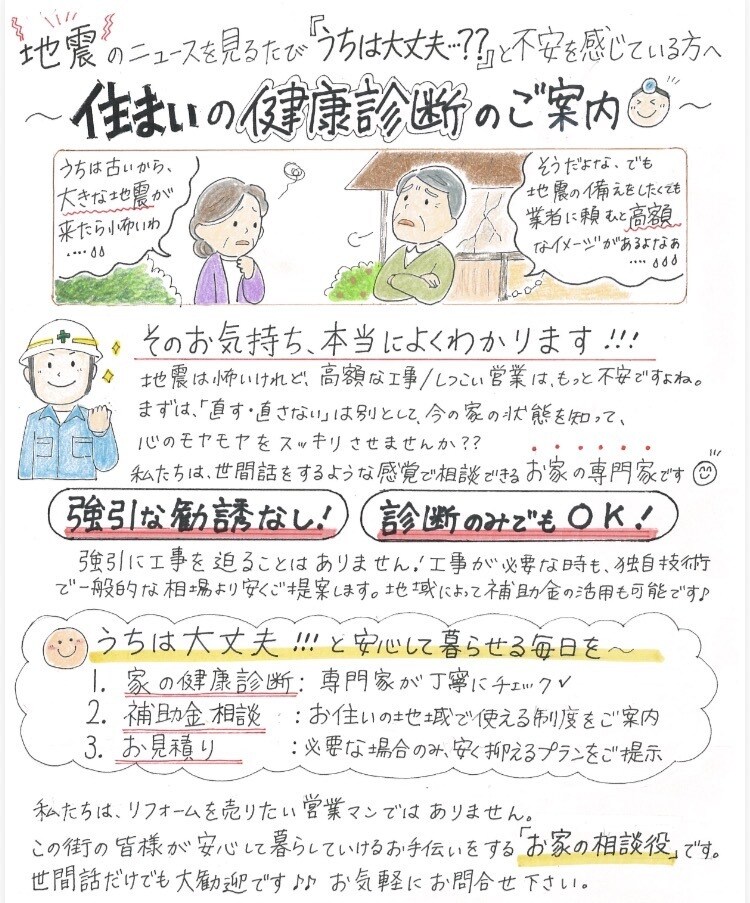 地震のニュースを見るたび『うちは大丈夫…??』と不安を感じている方へ
～住まいの健康診断のご案内～
うちは古いから、
大きな地震が
来たら怖いわ
....
そうだよな、でも
地震の備えをしたくても
業者に頼むと高額
なイメージがあるよなぁ
....
そのお気持ち、本当によくわかります!!!
地震は怖いけれど、高額な工事/しつこい営業は、もっと不安ですよね。
まずは、「直す・直さない」は別として、今の家の状態を知って、
心のモヤモヤをスッキリさせませんか??
私たちは、世間話をするような感覚で相談できるお家の専門家です
強引な勧誘なし!
診断のみでもOK!
強引に工事を迫ることはありません!工事が必要な時も、独自技術
で一般的な相場より安くご提案します。地域によって補助金の活用も可能です♪
うちは大丈夫!!!と安心して暮らせる毎日を～
1. 家の健康診断:専門家が丁寧にチェック✓
2. 補助金相談:お住いの地域で使える制度をご案内
3. お見積り:必要な場合のみ、安く抑えるプランをご提示
私たちは、リフォームを売りたい営業マンではありません。
この街の皆様が安心して暮らしていけるお手伝いをする「お家の相談役」です。
世間話だけでも大歓迎です♪♪ お気軽にお問合せ下さい。